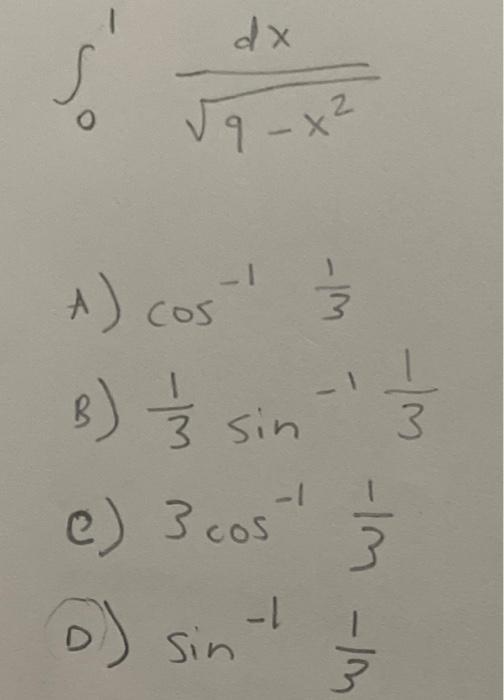 ∫₀¹ dx / √(9 - x²)
A) cos⁻¹ 1/3
B) 1/3 sin⁻¹ 1/3
C) 3 cos⁻¹ 1/3
D) sin⁻¹ 1/3